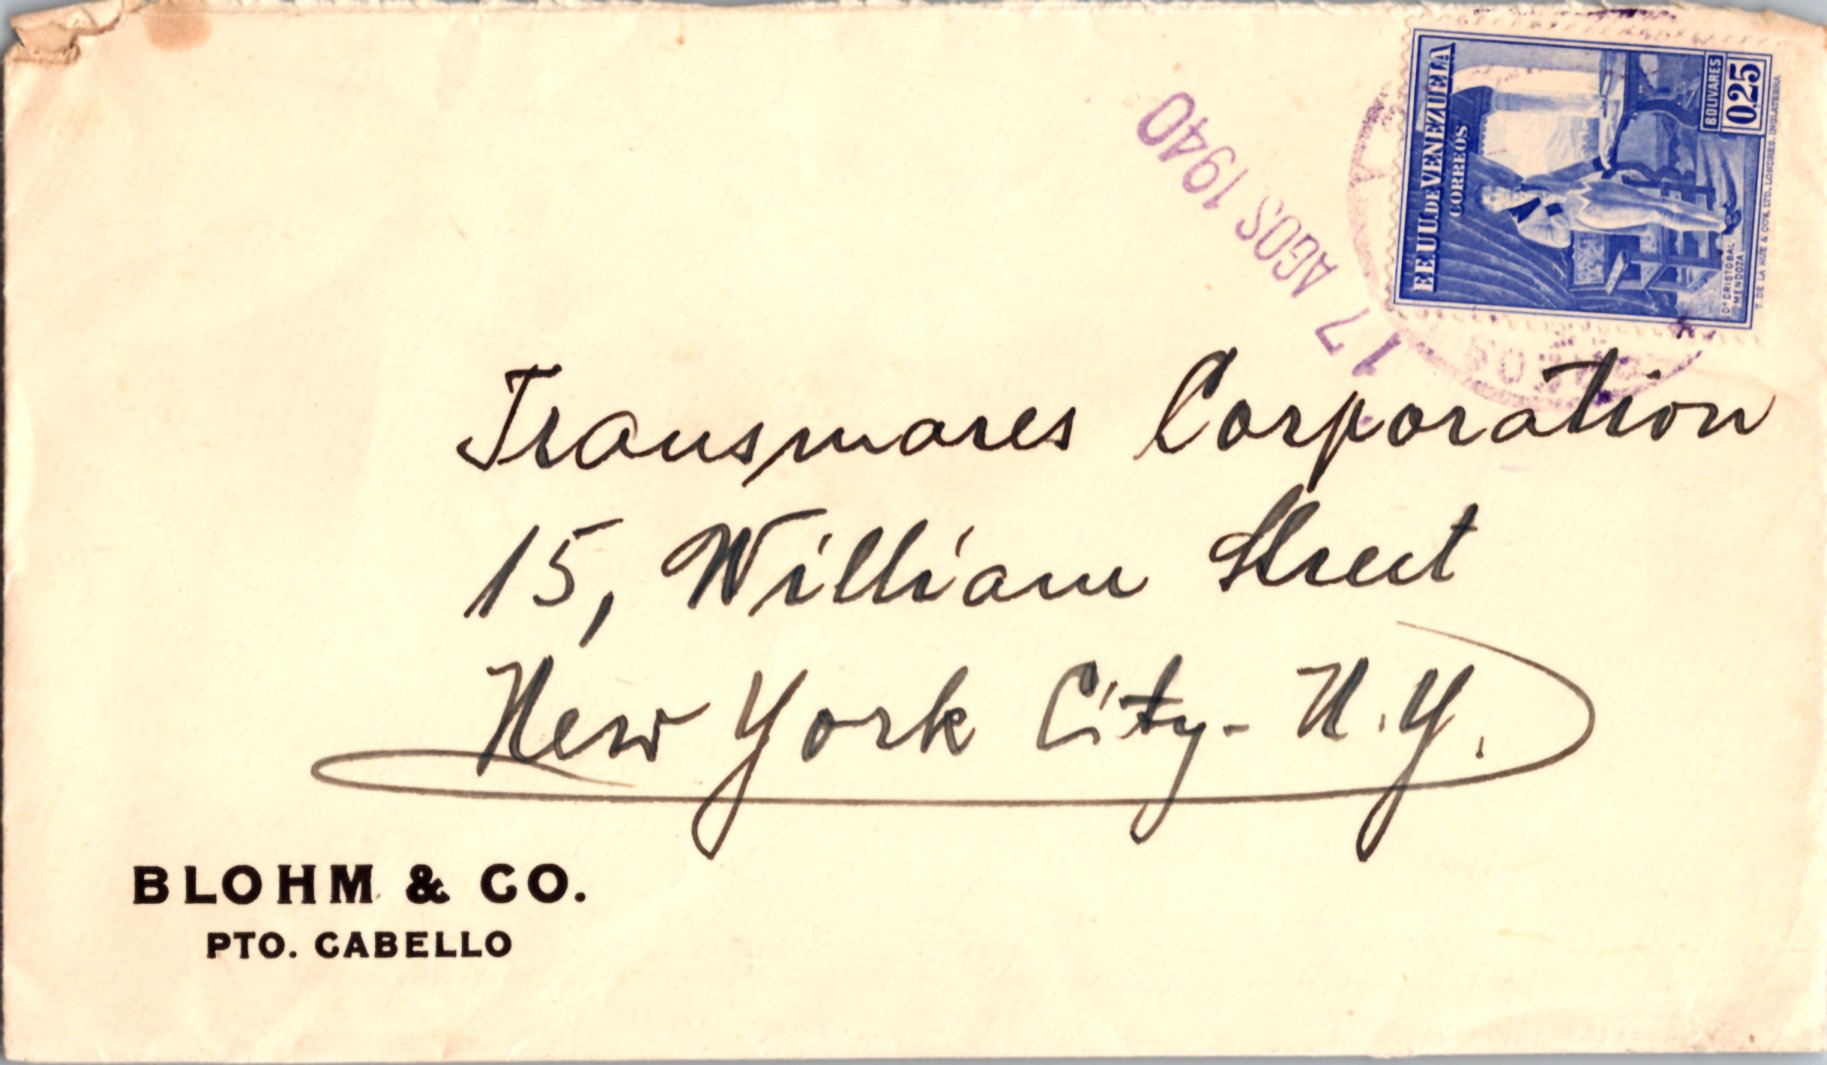 EE.UU.DE VENEZUELA
CORREOS
BOLIVARES
0.25
Dr CRISTOBAL
MENDOZA
T. DE LA RUE & COY. LTD. LONDRES. INGLATERRA
17 AGOS 1940
Transmares Corporation
15, William Street
New York City - N.Y.
BLOHM & CO.
PTO. CABELLO